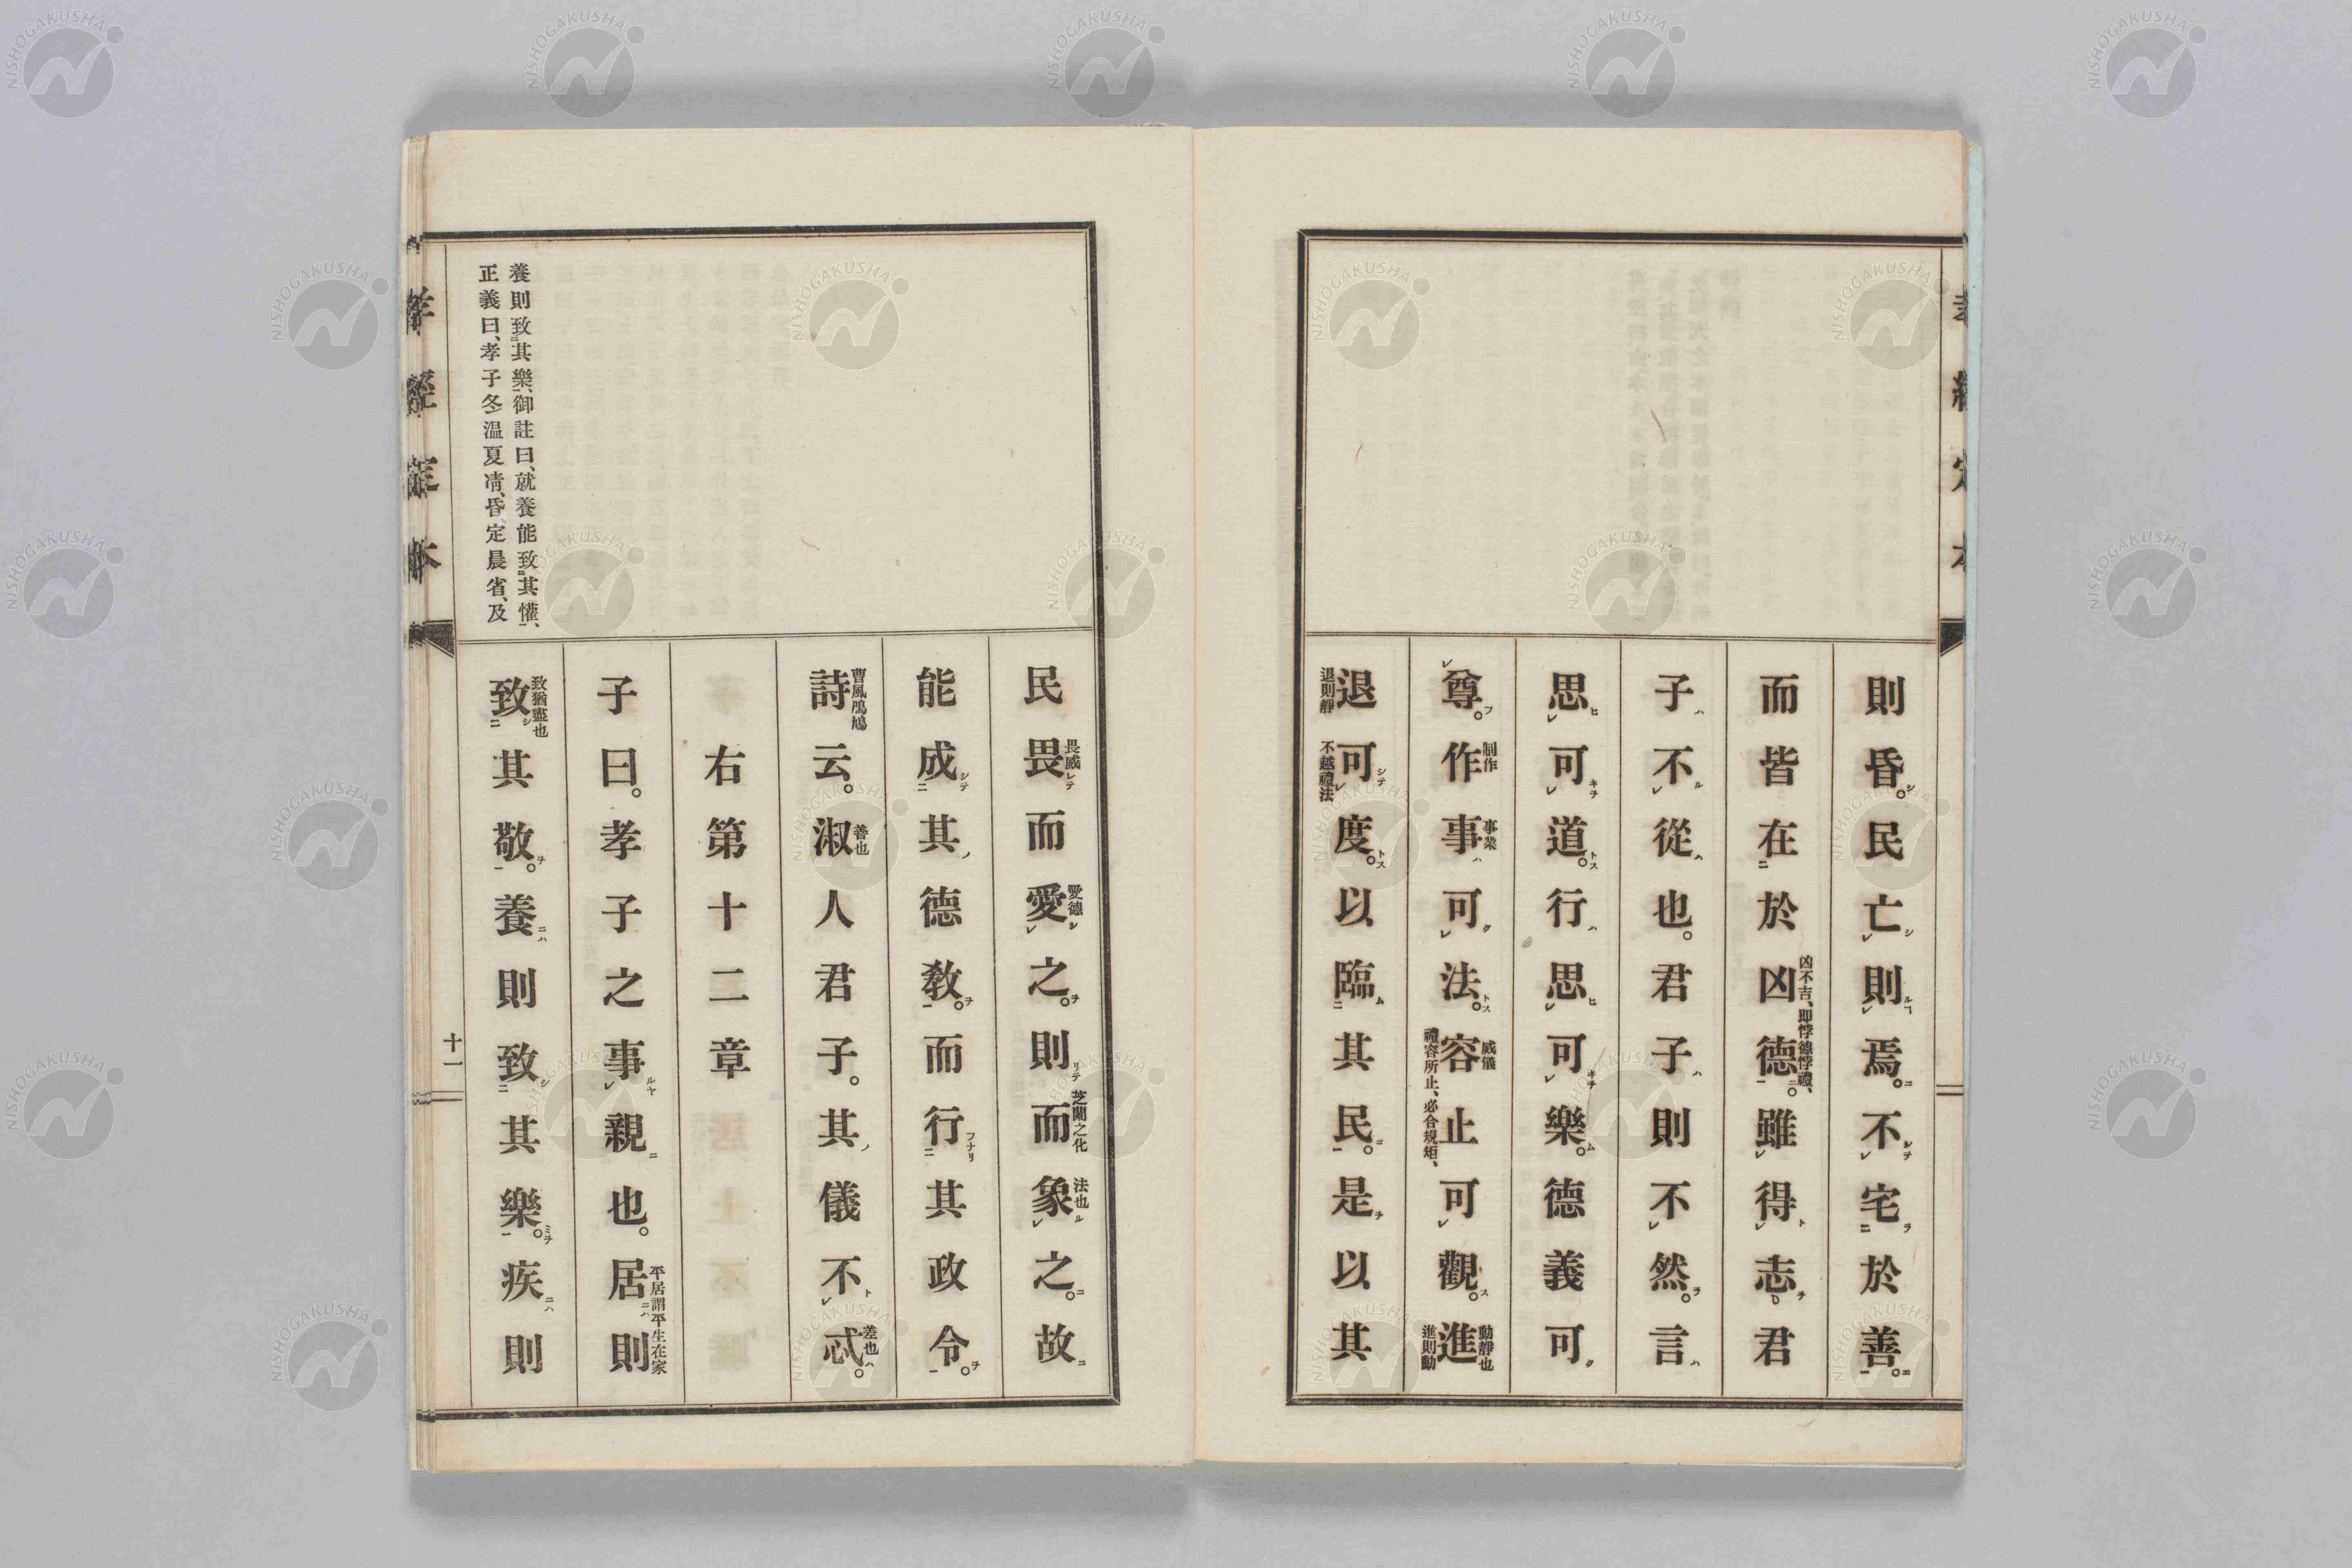 則昏。民亡則焉。不宅於善。
而皆在於凶德。雖得志君
凶不吉、即悖德悖禮、
子不從也。君子則不然。言
思可道。行思可樂。德義可
尊。作事可法。容止可觀。進
制作
事業
威儀
禮容所止、必合規矩、
動靜也
進則動
退可度。以臨其民。是以其
退則靜
不越禮法
民畏而愛之。則而象之。故
畏威
愛德
芝蘭之化
法也
能成其德敎。而行其政令。
詩云。淑人君子。其儀不忒。
曹風鳲鳩
善也
差也
右第十二章
子曰。孝子之事親也。居則
平居謂平生在家
致其敬。養則致其樂。疾則
致猶盡也
養則致其樂、御註曰、就養能致其懽、
正義曰、孝子冬溫夏凊、昏定晨省、及
孝經定本
十一
NISHOGAKUSHA